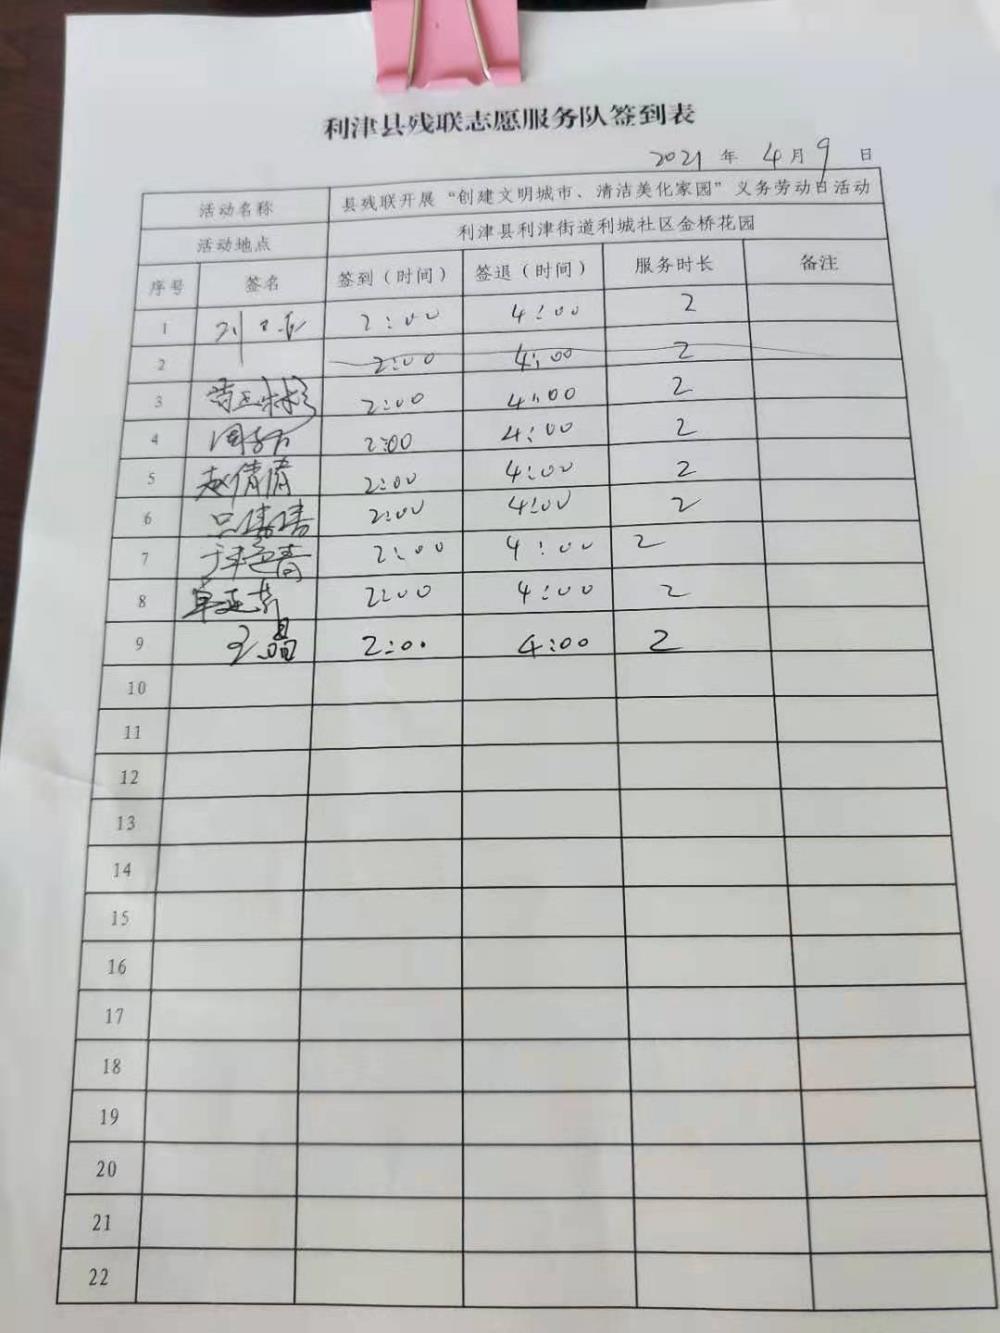 利津县残联志愿服务队签到表
2021 年 4 月 9 日
活动名称 县残联开展“创建文明城市、清洁美化家园”义务劳动日活动
活动地点 利津县利津街道利城社区金桥花园
序号 签名 签到（时间） 签退（时间） 服务时长 备注
1 2:00 4:00 2
2 2:00 4:00 2
3 2:00 4:00 2
4 2:00 4:00 2
5 赵倩倩 2:00 4:00 2
6 2:00 4:00 2
7 2:00 4:00 2
8 2:00 4:00 2
9 王晶 2:00 4:00 2
10
11
12
13
14
15
16
17
18
19
20
21
22